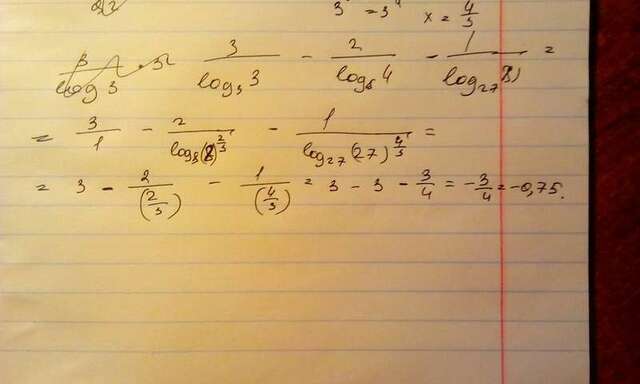 3 = 3 x = 4/3
3/log₃3 - 2/log₈4 - 1/log₂₇81 =
= 3/1 - 2/log₈(8)^(2/3) - 1/log₂₇(27)^(4/3) =
= 3 - 2/(2/3) - 1/(4/3) = 3 - 3 - 3/4 = -3/4 = -0,75.